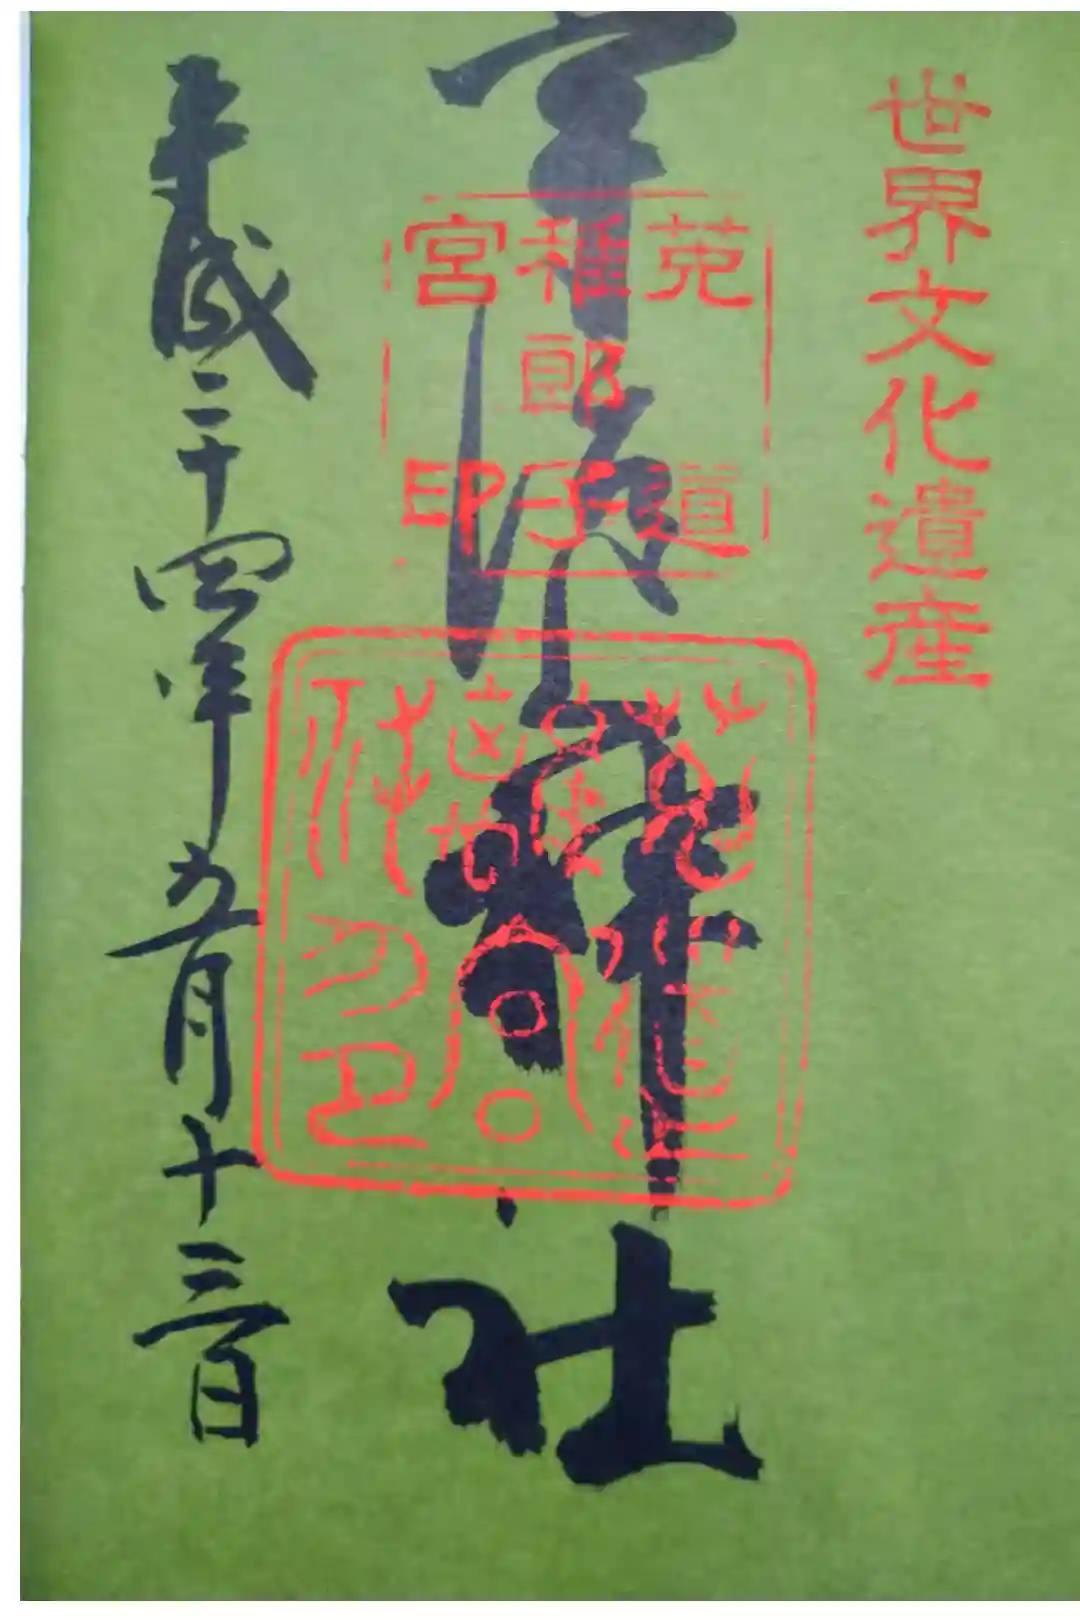 世界文化遺産
宇治上神社
菟道
稚郎子
宮印
平成二十四年五月十三日